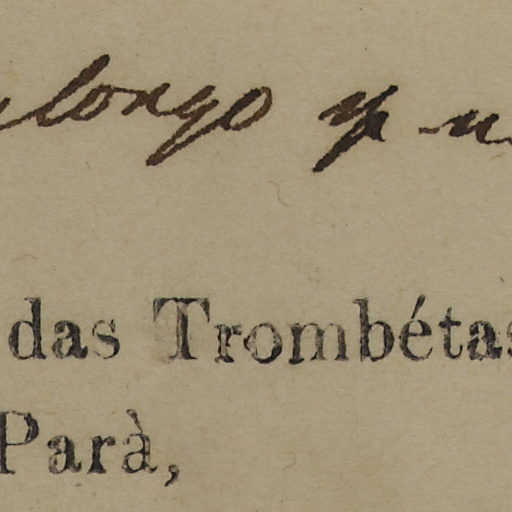 longo
das Trombétas
Parà,